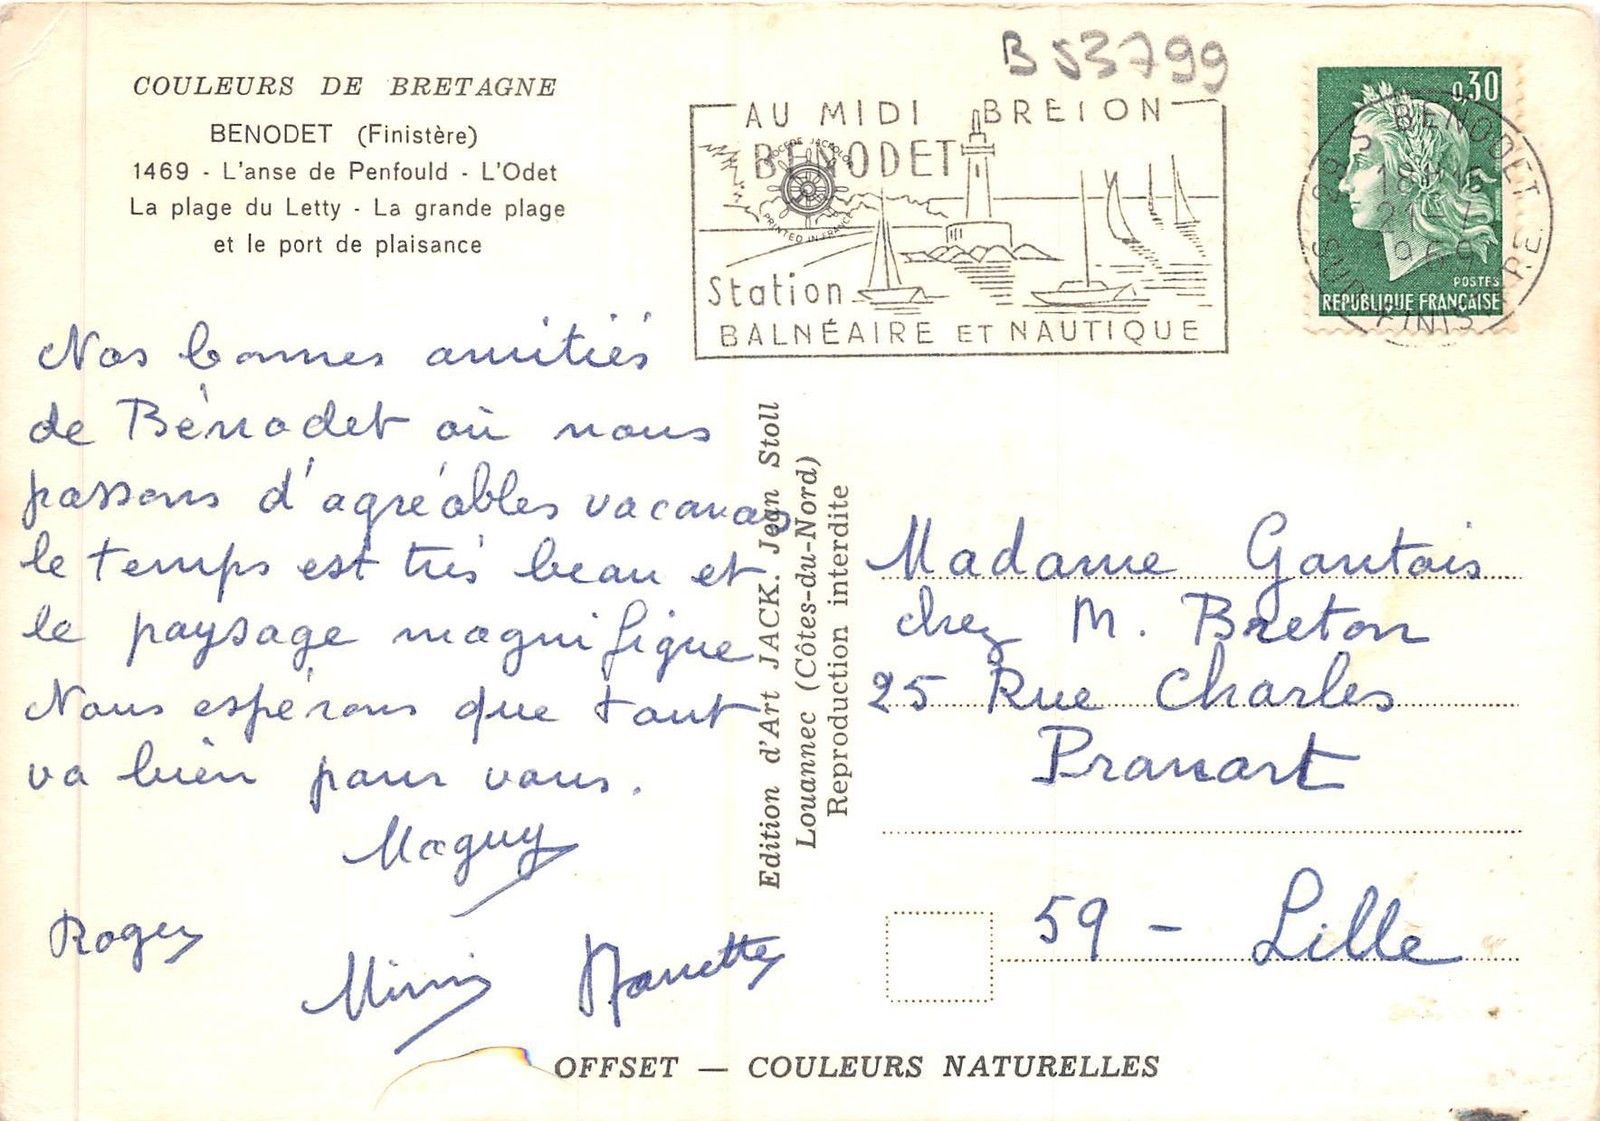 B 53799
COULEURS DE BRETAGNE
BENODET (Finistère)
1469 - L'anse de Penfould - L'Odet
La plage du Letty - La grande plage
et le port de plaisance
AU MIDI BRETON
BENODET
PROCEDE JACKOLOR
PRINTED IN FRANCE
Station
BALNÉAIRE ET NAUTIQUE
0,30
POSTES
REPUBLIQUE FRANÇAISE
29 S BENODET
18H15
21-7
1969
SUD FINISTERE
Nos bonnes amitiés
de Bénodet où nous
passons d'agréables vacances
le temps est très beau et
le paysage magnifique
Nous espérons que tout
va bien pour vous.
Maguy
Roger
Mimi Nanette
Edition d'Art JACK. Jean Stoll
Louannec (Côtes-du-Nord)
Reproduction interdite
Madame Gantois
chez M. Breton
25 Rue Charles
Pranart
59 - Lille
OFFSET — COULEURS NATURELLES